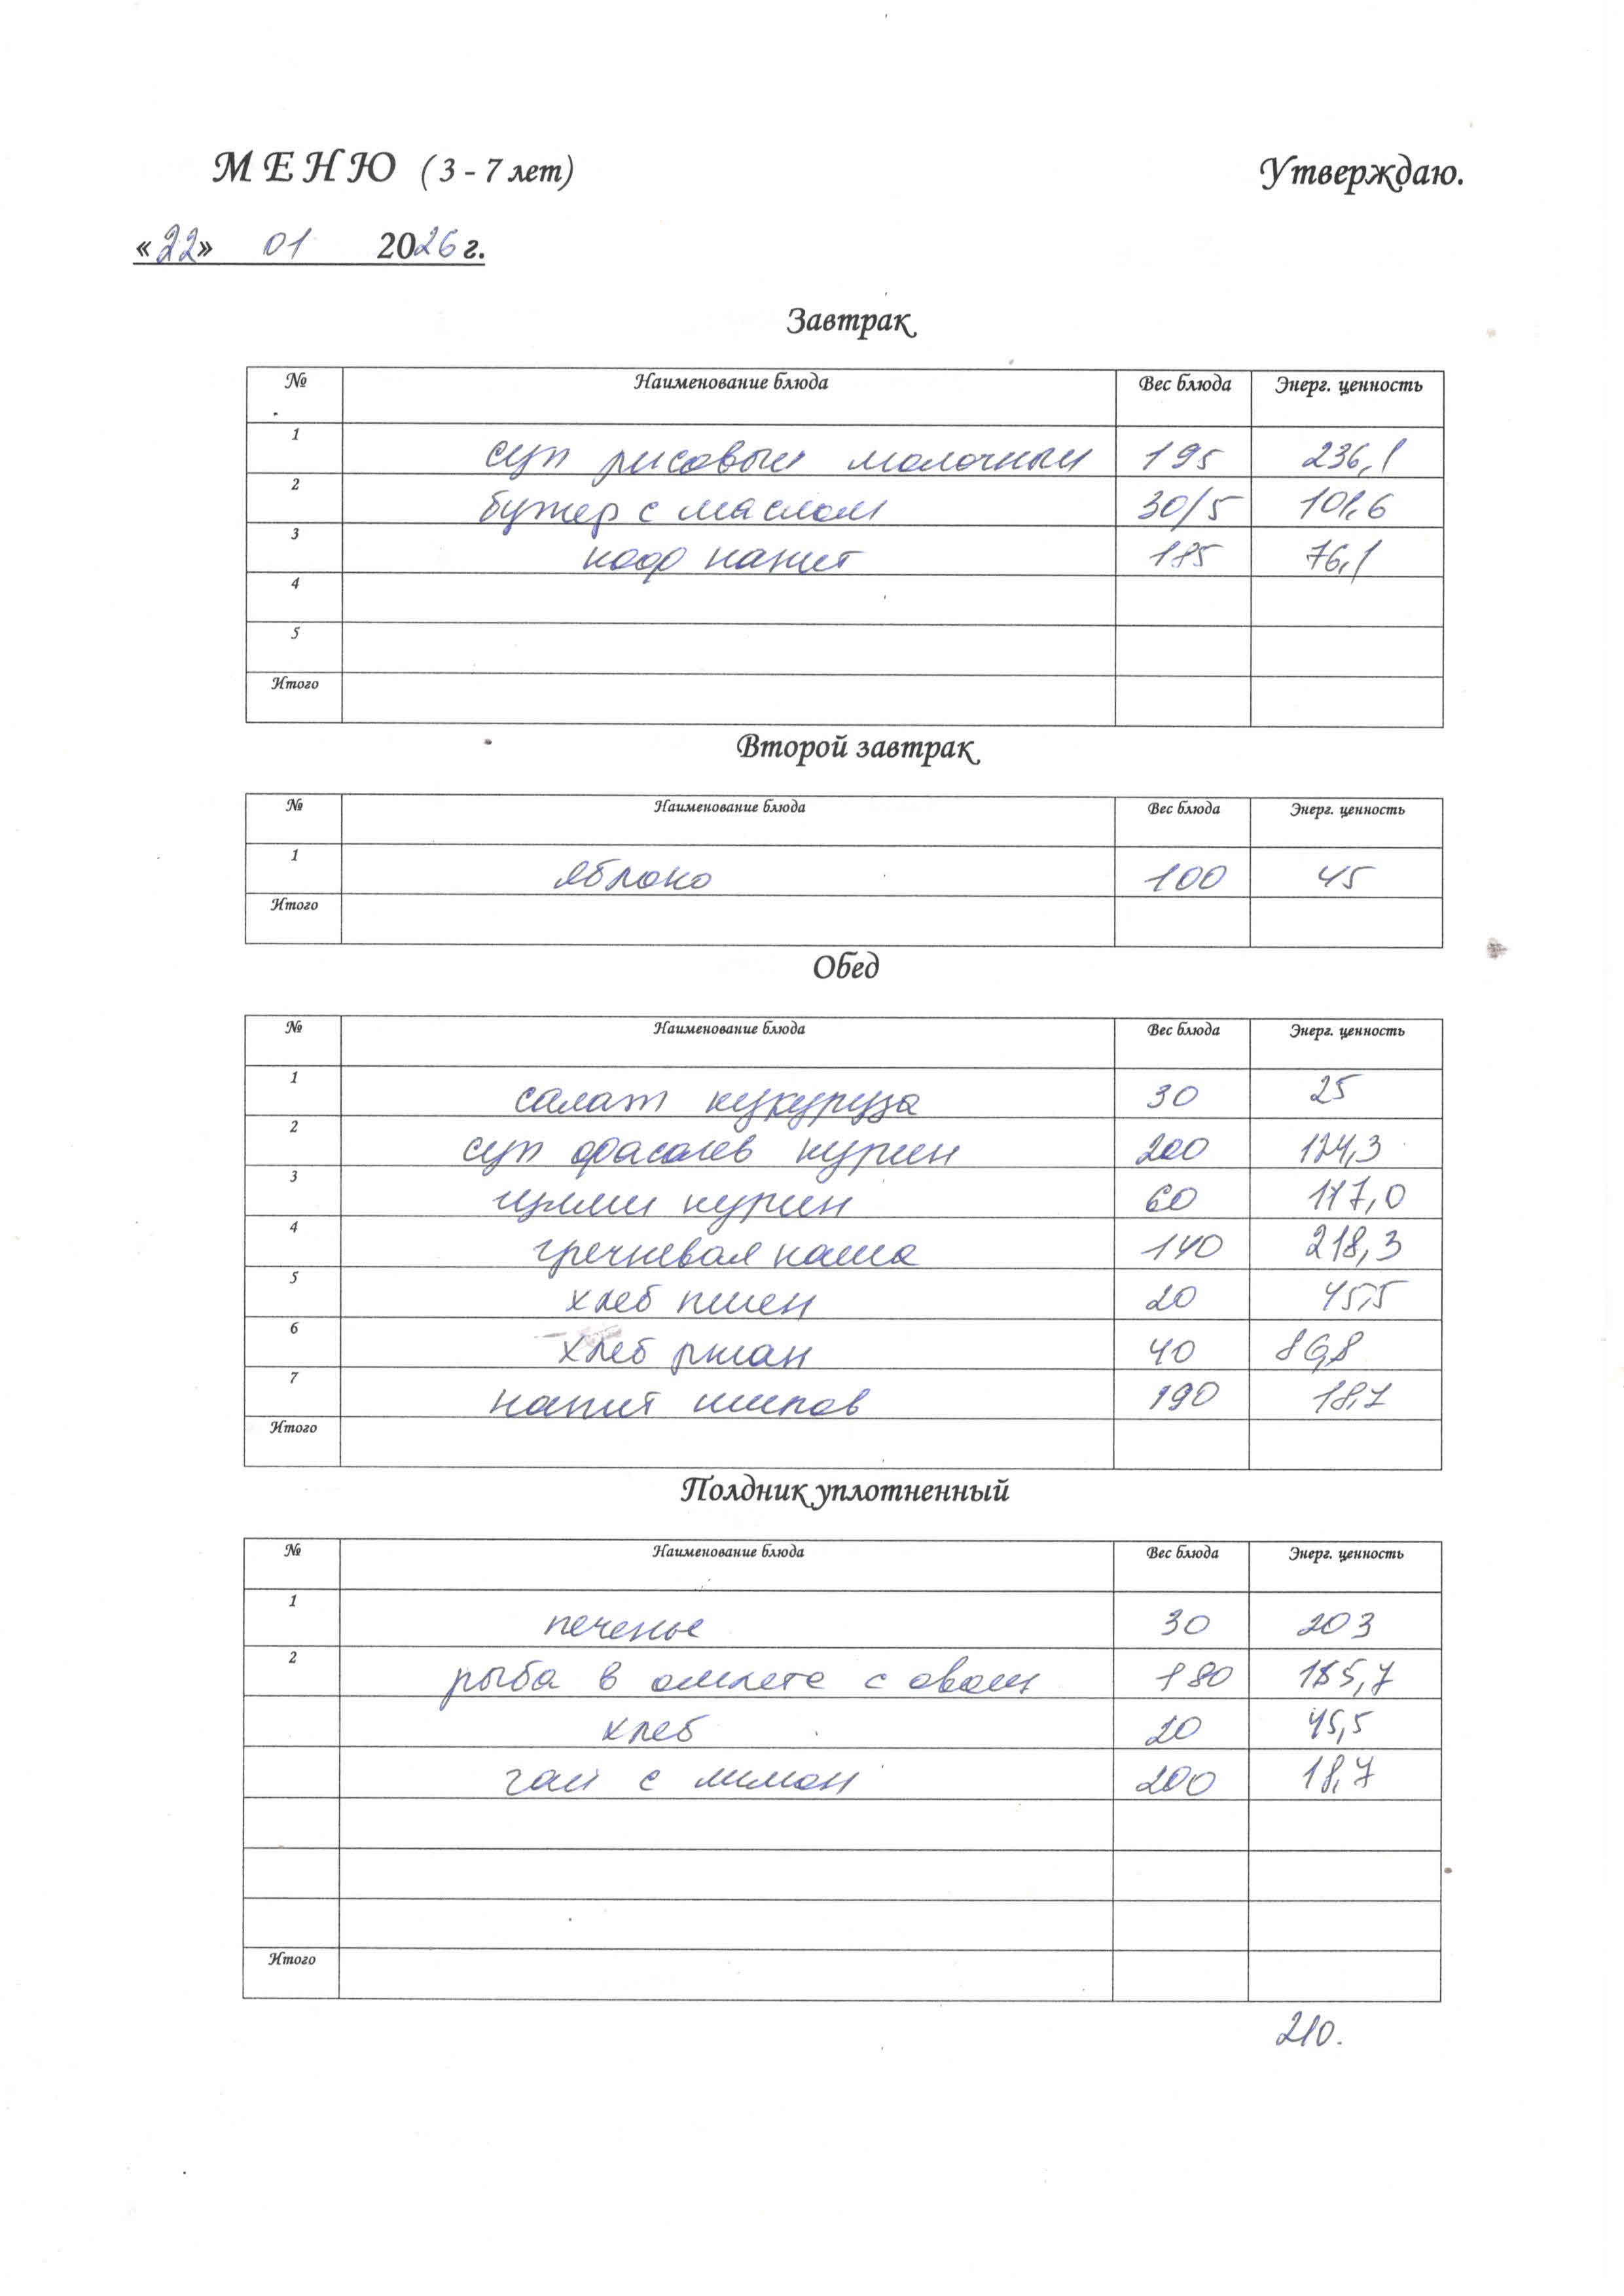 МЕНЮ (3 - 7 лет) Утверждаю.
«22» 01 2026 г.
Завтрак
№ Наименование блюда Вес блюда Энерг. ценность
1 суп рисовый молочный 195 236,1
2 бутер с маслом 30/5 101,6
3 коф напит 185 76,1
4
5
Итого
Второй завтрак
№ Наименование блюда Вес блюда Энерг. ценность
1 яблоко 100 45
Итого
Обед
№ Наименование блюда Вес блюда Энерг. ценность
1 салат кукуруза 30 25
2 суп фасолев курин 200 124,3
3 курин 60
4 гречневая каша 140 218,3
5 хлеб пшен 20 45,5
6 хлеб ржан 40
7 напит шипов 190 18,7
Итого
Полдник уплотненный
№ Наименование блюда Вес блюда Энерг. ценность
1 печенье 30 203
2 рыба в омлете с овощ 180
хлеб 20 45,5
чай с лимон 200 18,7
Итого
210.